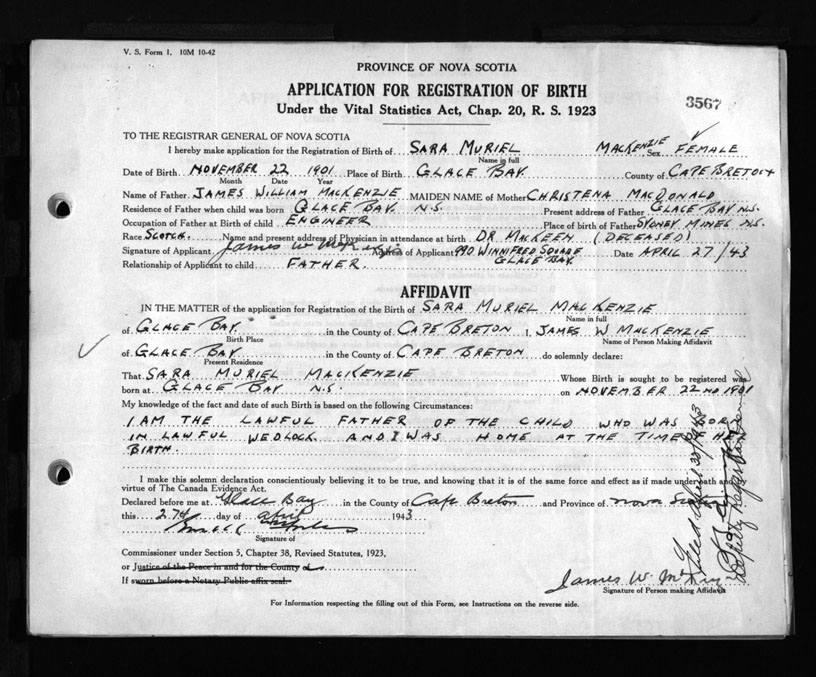 V. S. Form 1. 10M 10-42
PROVINCE OF NOVA SCOTIA
APPLICATION FOR REGISTRATION OF BIRTH
Under the Vital Statistics Act, Chap. 20, R. S. 1923
3567
TO THE REGISTRAR GENERAL OF NOVA SCOTIA
I hereby make application for the Registration of Birth of SARA MURIEL MACKENZIE Sex FEMALE
Name in full
Date of Birth NOVEMBER 22 1901 Place of Birth GLACE BAY County of CAPE BRETON
Month Date Year
Name of Father JAMES WILLIAM MACKENZIE MAIDEN NAME of Mother CHRISTENA MACDONALD
Residence of Father when child was born GLACE BAY. N.S. Present address of Father GLACE BAY N.S.
Occupation of Father at Birth of child ENGINEER Place of birth of Father SYDNEY MINES N.S.
Race SCOTCH. Name and present address of Physician in attendance at birth DR MACKEEN (DECEASED)
Signature of Applicant James W Address of Applicant WINNIFRED SQUARE Date APRIL 27/43
GLACE BAY.
Relationship of Applicant to child FATHER.
AFFIDAVIT
IN THE MATTER of the application for Registration of the Birth of SARA MURIEL MACKENZIE
Name in full
of GLACE BAY in the County of CAPE BRETON I, JAMES W MACKENZIE
Birth Place Name of Person Making Affidavit
of GLACE BAY in the County of CAPE BRETON do solemnly declare:
Present Residence
That SARA MURIEL MACKENZIE Whose Birth is sought to be registered was
born at GLACE BAY N.S. on NOVEMBER 22ND 1901
My knowledge of the fact and date of such Birth is based on the following Circumstances:
I AM THE LAWFUL FATHER OF THE CHILD WHO WAS BORN
IN LAWFUL WEDLOCK. AND I WAS HOME AT THE TIME OF HER
BIRTH.
I make this solemn declaration conscientiously believing it to be true, and knowing that it is of the same force and effect as if made under oath and
virtue of The Canada Evidence Act.
Declared before me at Glace Bay in the County of Cape Breton and Province of Nova Scotia
this 27th day of April 1943
Signature of
Commissioner under Section 5, Chapter 38, Revised Statutes, 1923,
or Justice of the Peace in and for the County
If sworn before a Notary Public affix seal.
James W.
Signature of Person making Affidavit
For Information respecting the filling out of this Form, see Instructions on the reverse side.
Filed April 1943
Deputy Registrar General